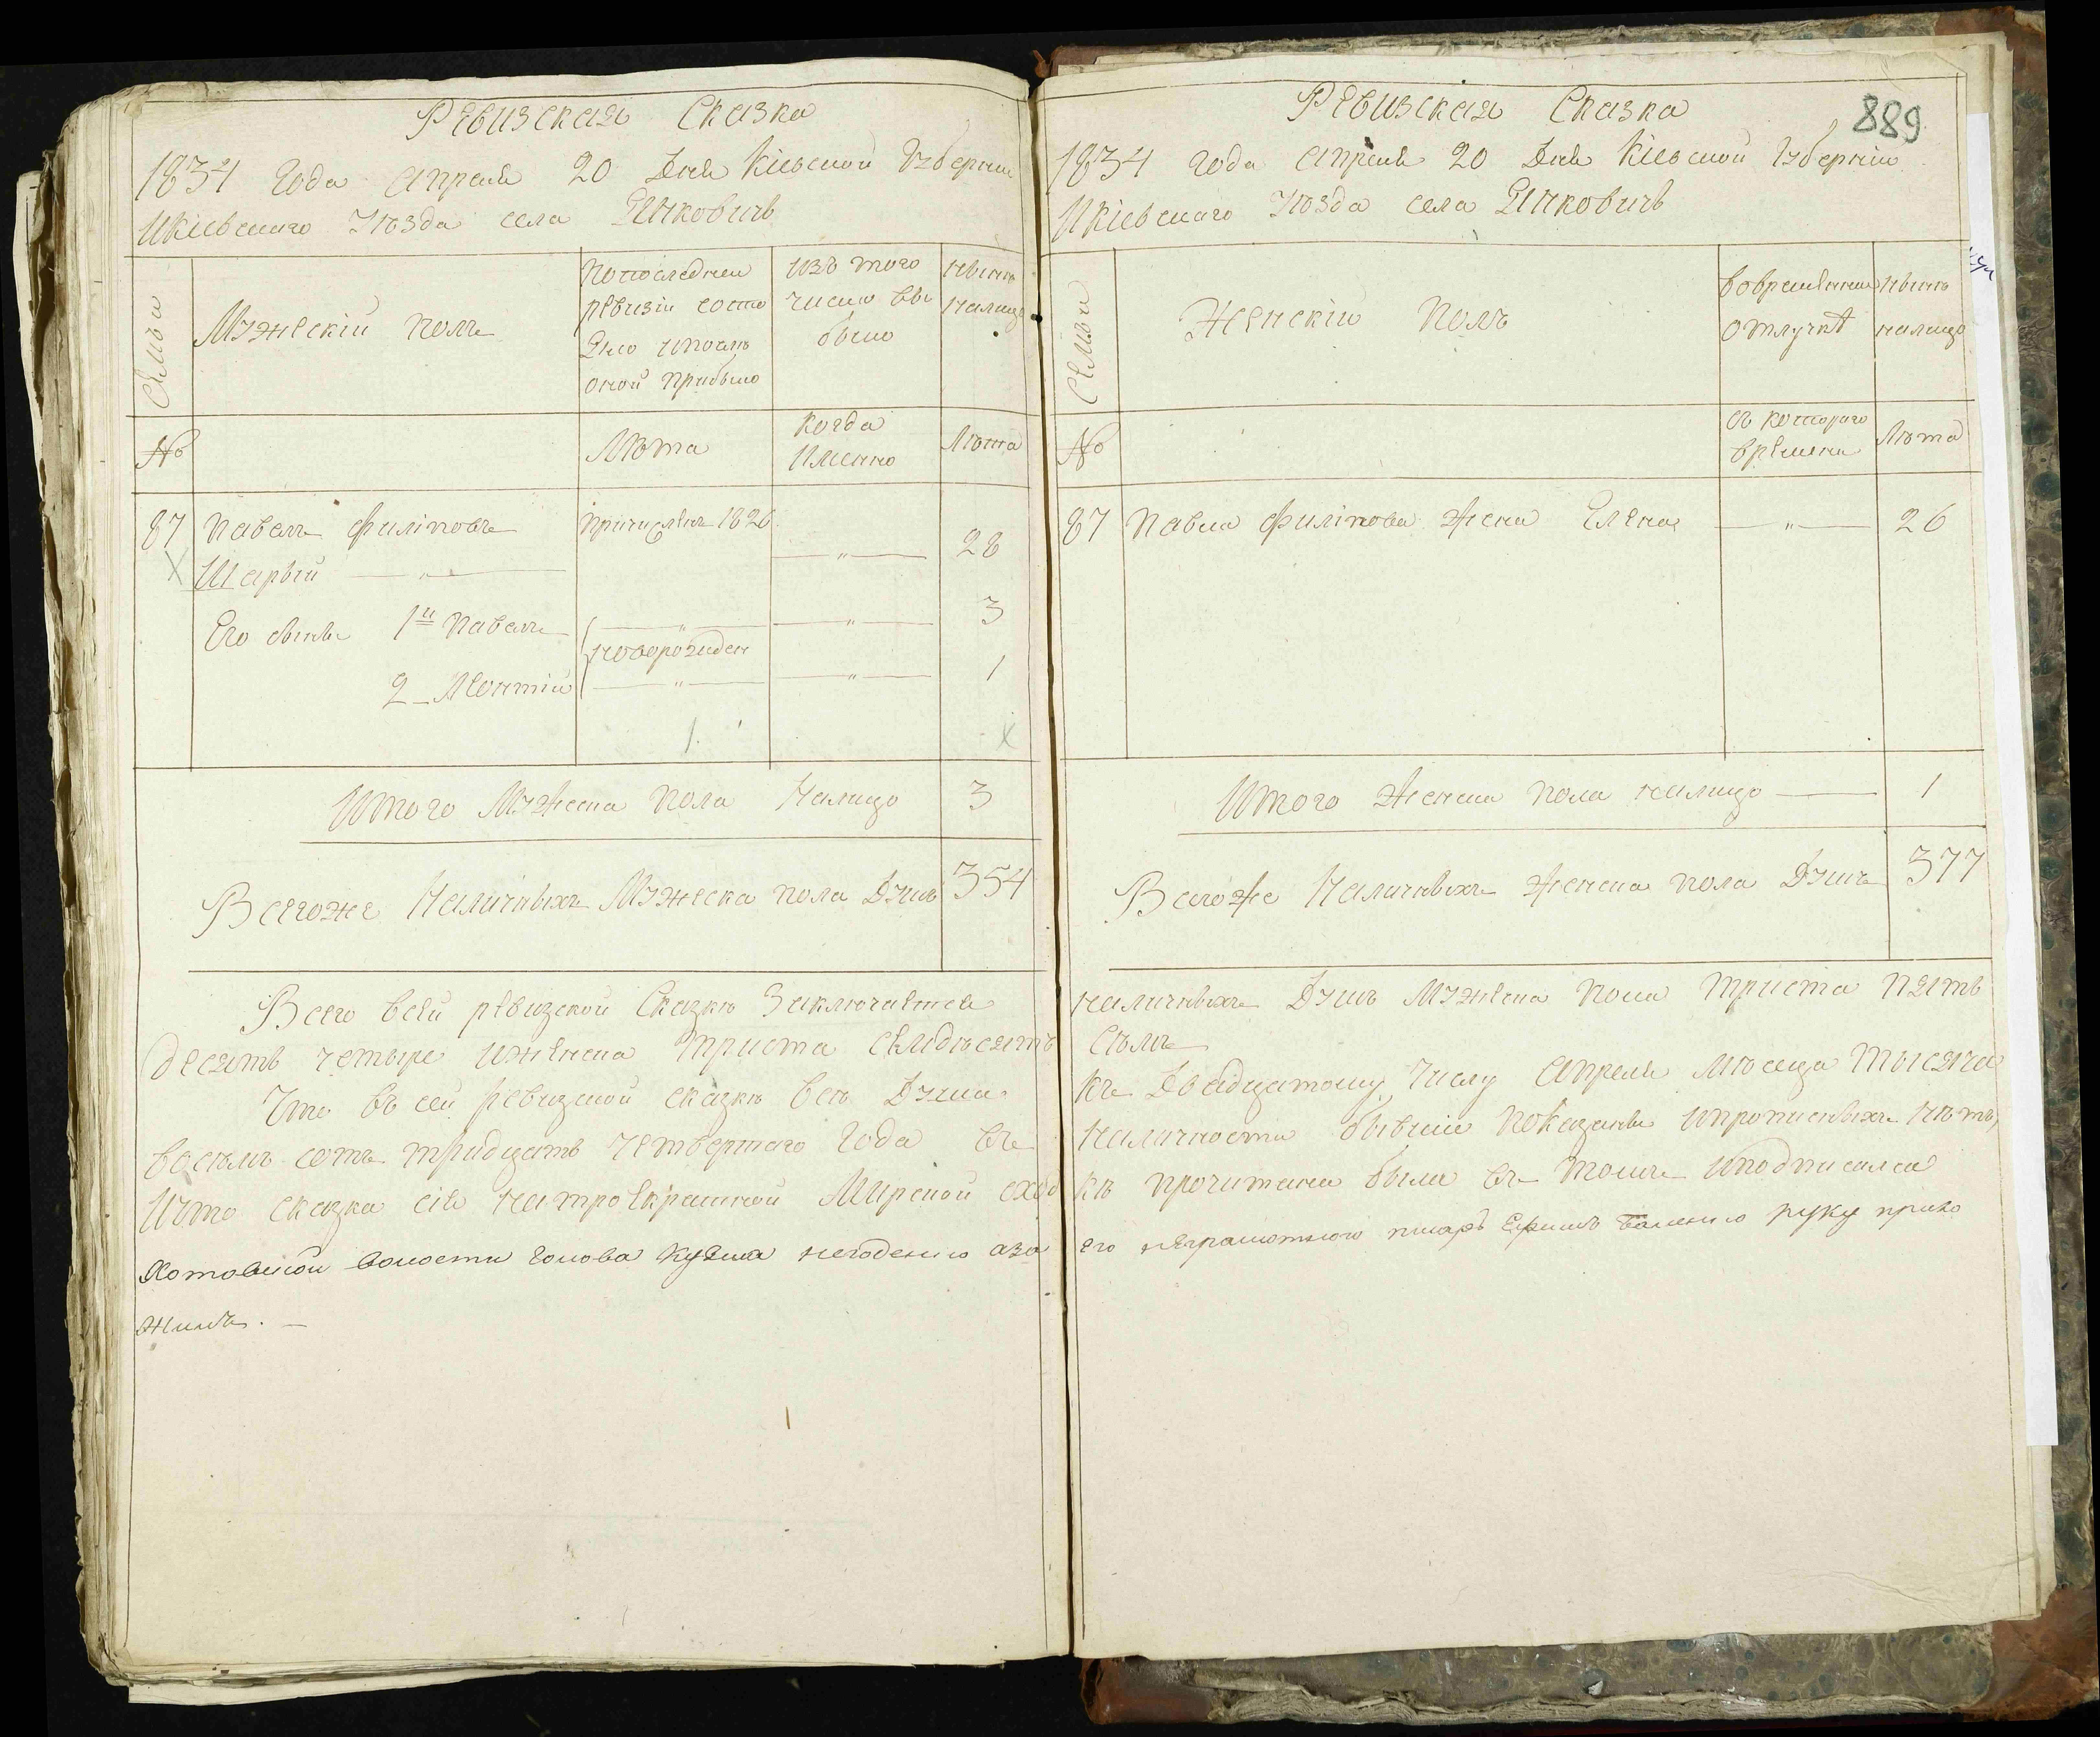 Ревизская Сказка
1834 Года Апреля 20 Дня Кіевской Губерніи
Икіевскаго Уѣзда села Янковичь
Семьи
Мужескій полъ
Попоследней ревизіи состо яло ипослѣ оной прибыло
Изъ того числа вы было
Нынѣ налицо
№
Лѣта
Когда Именно
Лѣта
87 Павелъ Филіповъ причисленъ 1826
Шарый — " — — " — 28
Его сынъ 1й Павелъ — " — — " — 3
новорожден
2 – Леонтій — " — — " — 1
Итого Мужеска пола Налицо 3
Всегоже Наличныхъ Мужеска пола Душъ 354
Всего всей ревизской Сказкѣ Заключается
десять четыре иженска триста семдѣсять
Что въ сей ревизской сказкѣ всѣ Душа
восемъ сотъ тридцать четвертаго Года въ
Ичто сказка сія натроекратной Мирской сход
Хотовской волости голова Кузма аза
жилъ. –
889
Ревизская Сказка
1834 года Апреля 20 Дня Кіевской Губерніи
Икіевскаго Уѣзда села Янковичь
Семьи
Женскій Полъ
Вовременной отлучкѣ
Нынѣ налицо
№
Съ котораго времени
Лѣта
87 Павла Филіпова Жена Елена — " — 26
Итого Женска пола налицо — 1
Всегоже Наличныхъ Женска пола Душъ 377
наличныхъ Душъ Мужеска пола триста пять
семъ
къ Двадцатому Числу Апреля Мѣсяца тысяча
наличности бывшіе показаны ипрописныхъ нѣтъ,
кѣ прочитана была въ томъ иподписался
его неграмотного писарь Ефимъ руку прило